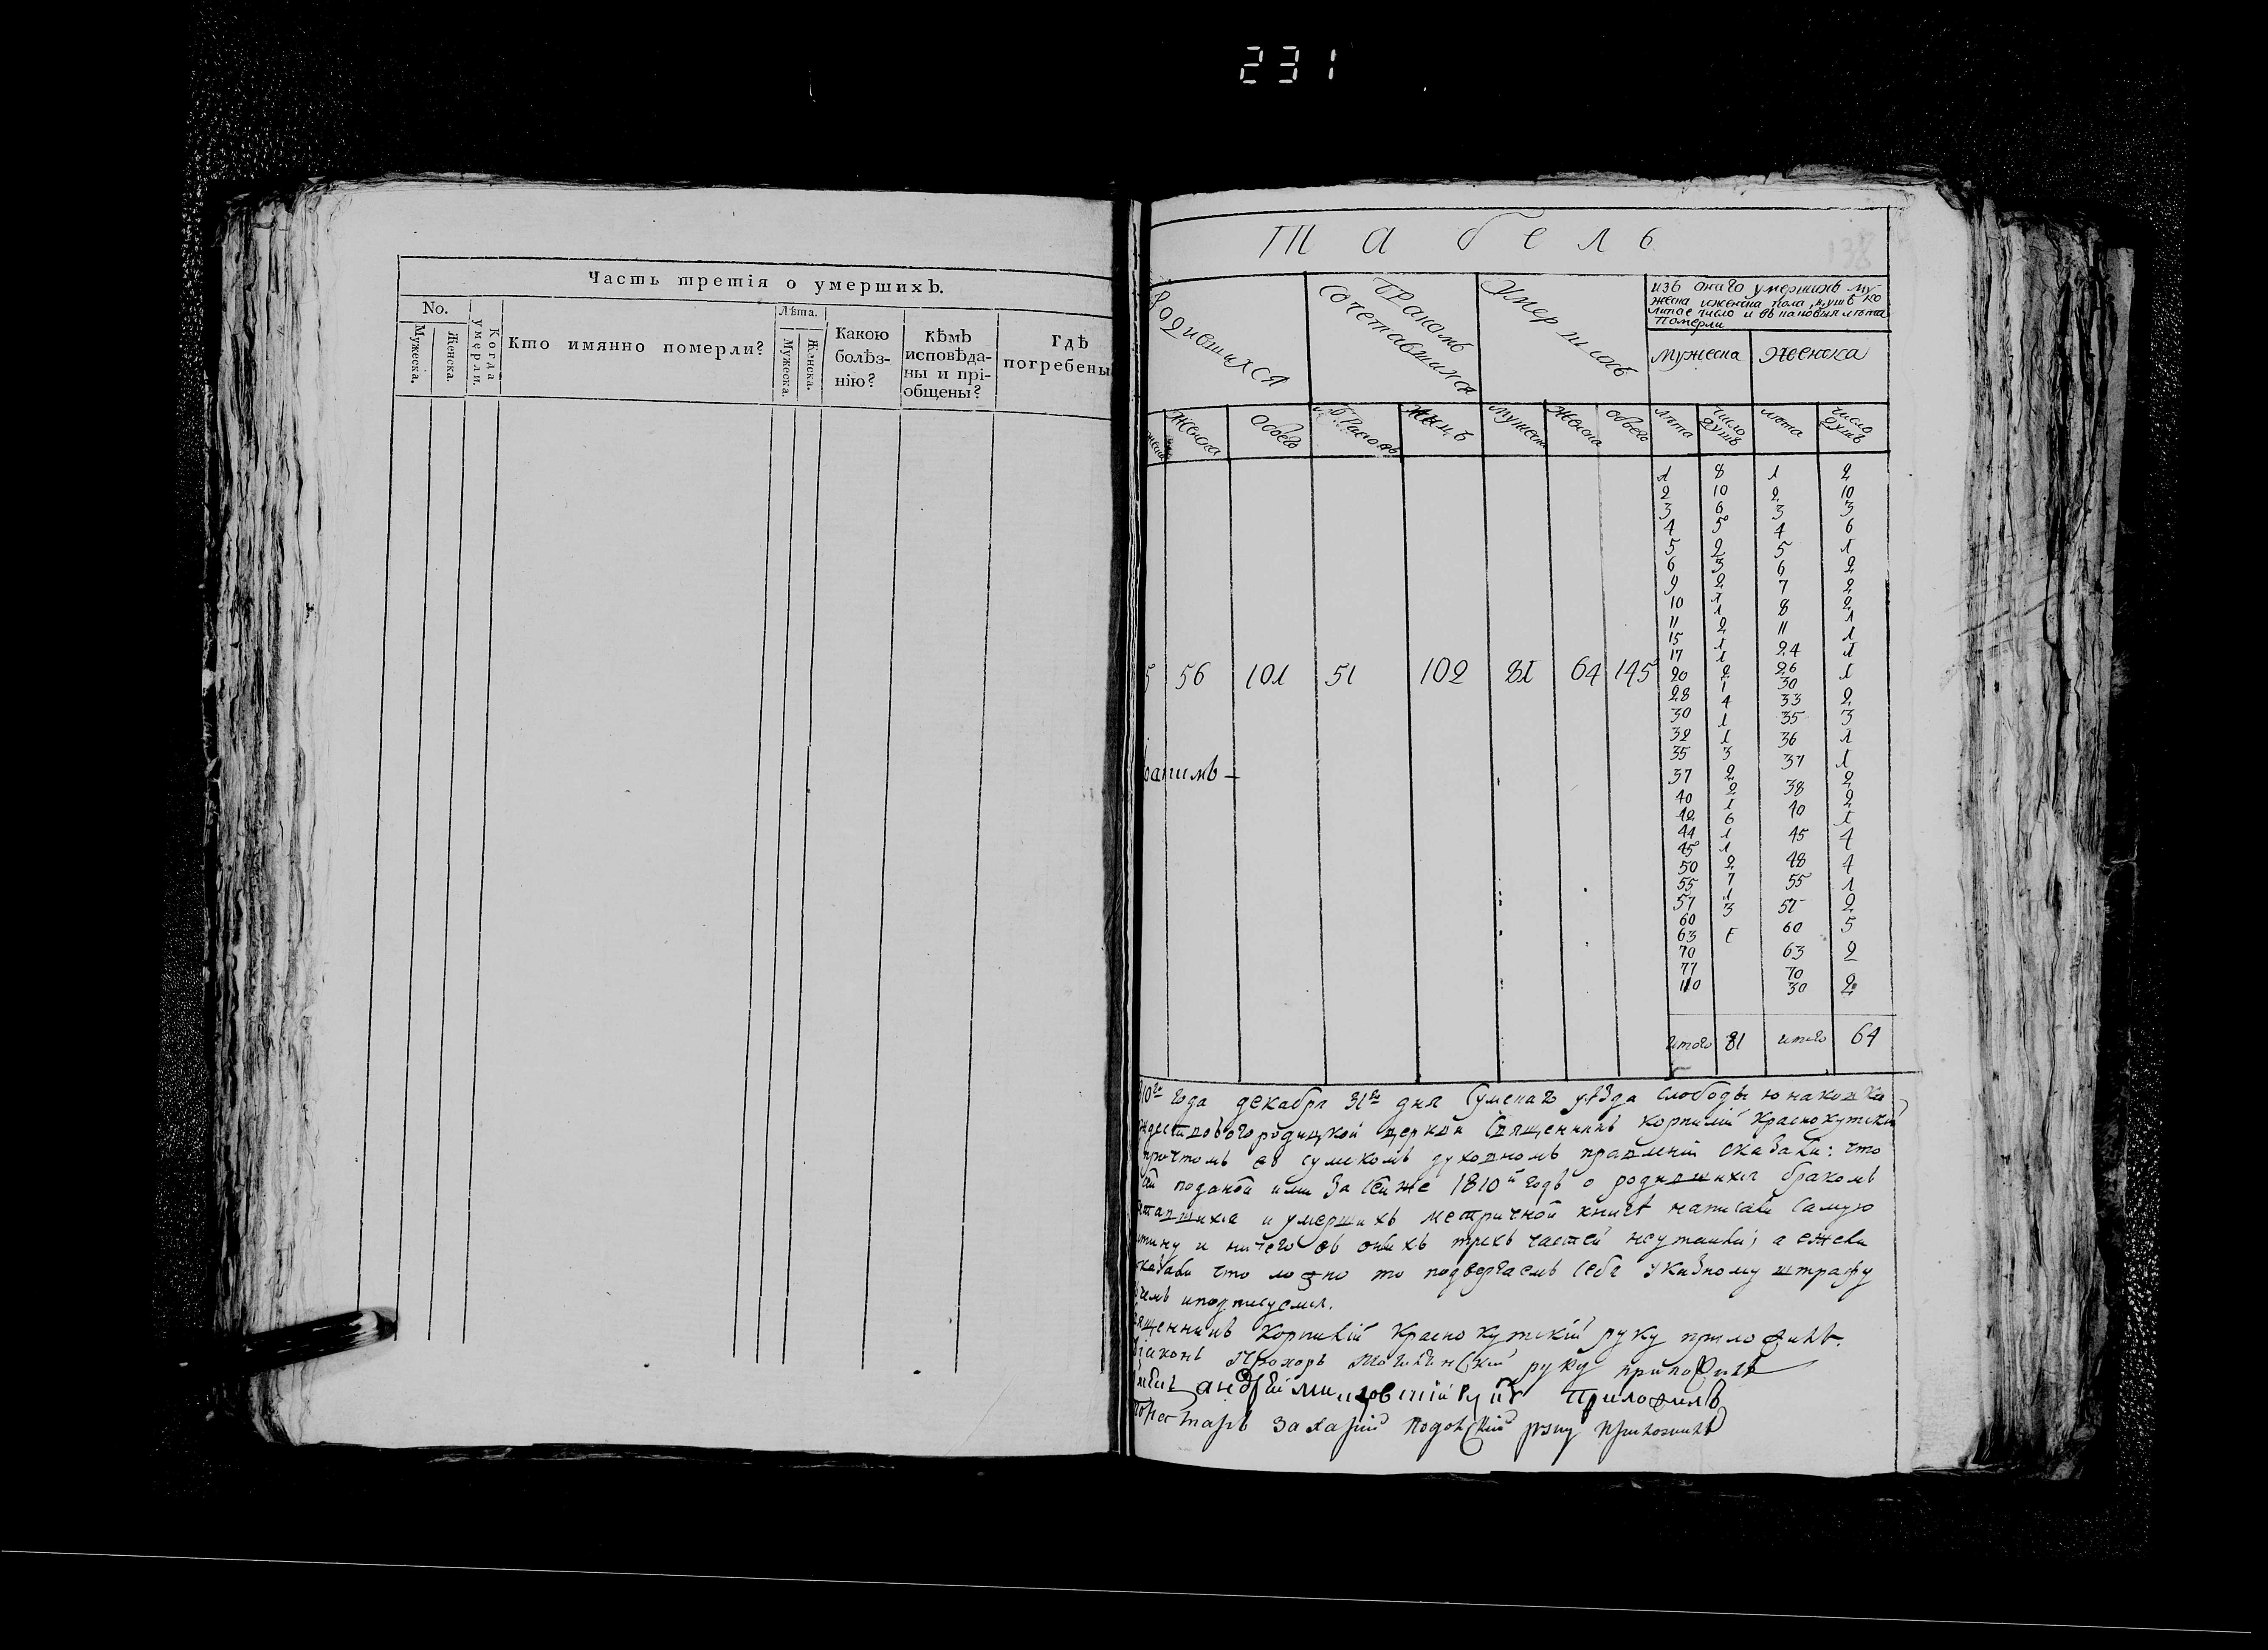 231
Часть третія о умершихъ.
No.
Мужеска.
Женска.
Когда умерли.
Кто имянно померли?
Лѣта.
Мужеска.
Женска.
Какою болѣз-
нію?
кѣмъ
исповѣда-
ны и прі-
общены?
Гдѣ
погребены
138
Табель
Родившихся
бракомъ
сочетавшихся
умершихъ
изъ онаго умершихъ му-
жеска иженска пола душъ ко
ликое число и въ каковыя лѣта
померли
мужеска женска
женска обоего браковъ лицъ мужеска женска обоего лѣта число душъ лѣта число душъ
1 8 1 2
2 10 2 10
3 6 3 3
4 5 4 6
5 2 5 1
6 3 6 2
9 2 7 2
10 1 8 2
11 2 11 1
15 1 24 1
17 1 26 1
5 56 101 51 102 81 64 145
20 2 30 1
28 1 33 2
30 4 35 3
32 1 36 1
35 1 37 1
37 3 38 2
40 2 40 2
42 2 45 1
44 1 48 4
45 6 55 4
50 1 57 1
55 1 60 2
57 2 63 5
60 7 70 2
63 1 30 2
70 3
77
110
итого 81 итого 64
года декабря 31го дня Сумскаго уѣзда слободы юнаковки
церкви священникъ корнилій краснокутскій
причтомъ въ сумскомъ духовномъ правленіи сказали: что
поданой ими за сей же 1810й годъ о родившихся бракомъ
и умершихъ метричной книгѣ написали самую
и ничего въ оныхъ трехъ частей неутаили; а ежели
что ложно то подвергаемъ себя указному штрафу
иподписуемся.
Корнилій Краснокутскій руку приложилъ.
Прохоръ руку приложилъ
андрей приложилъ
захарій руку приложилъ